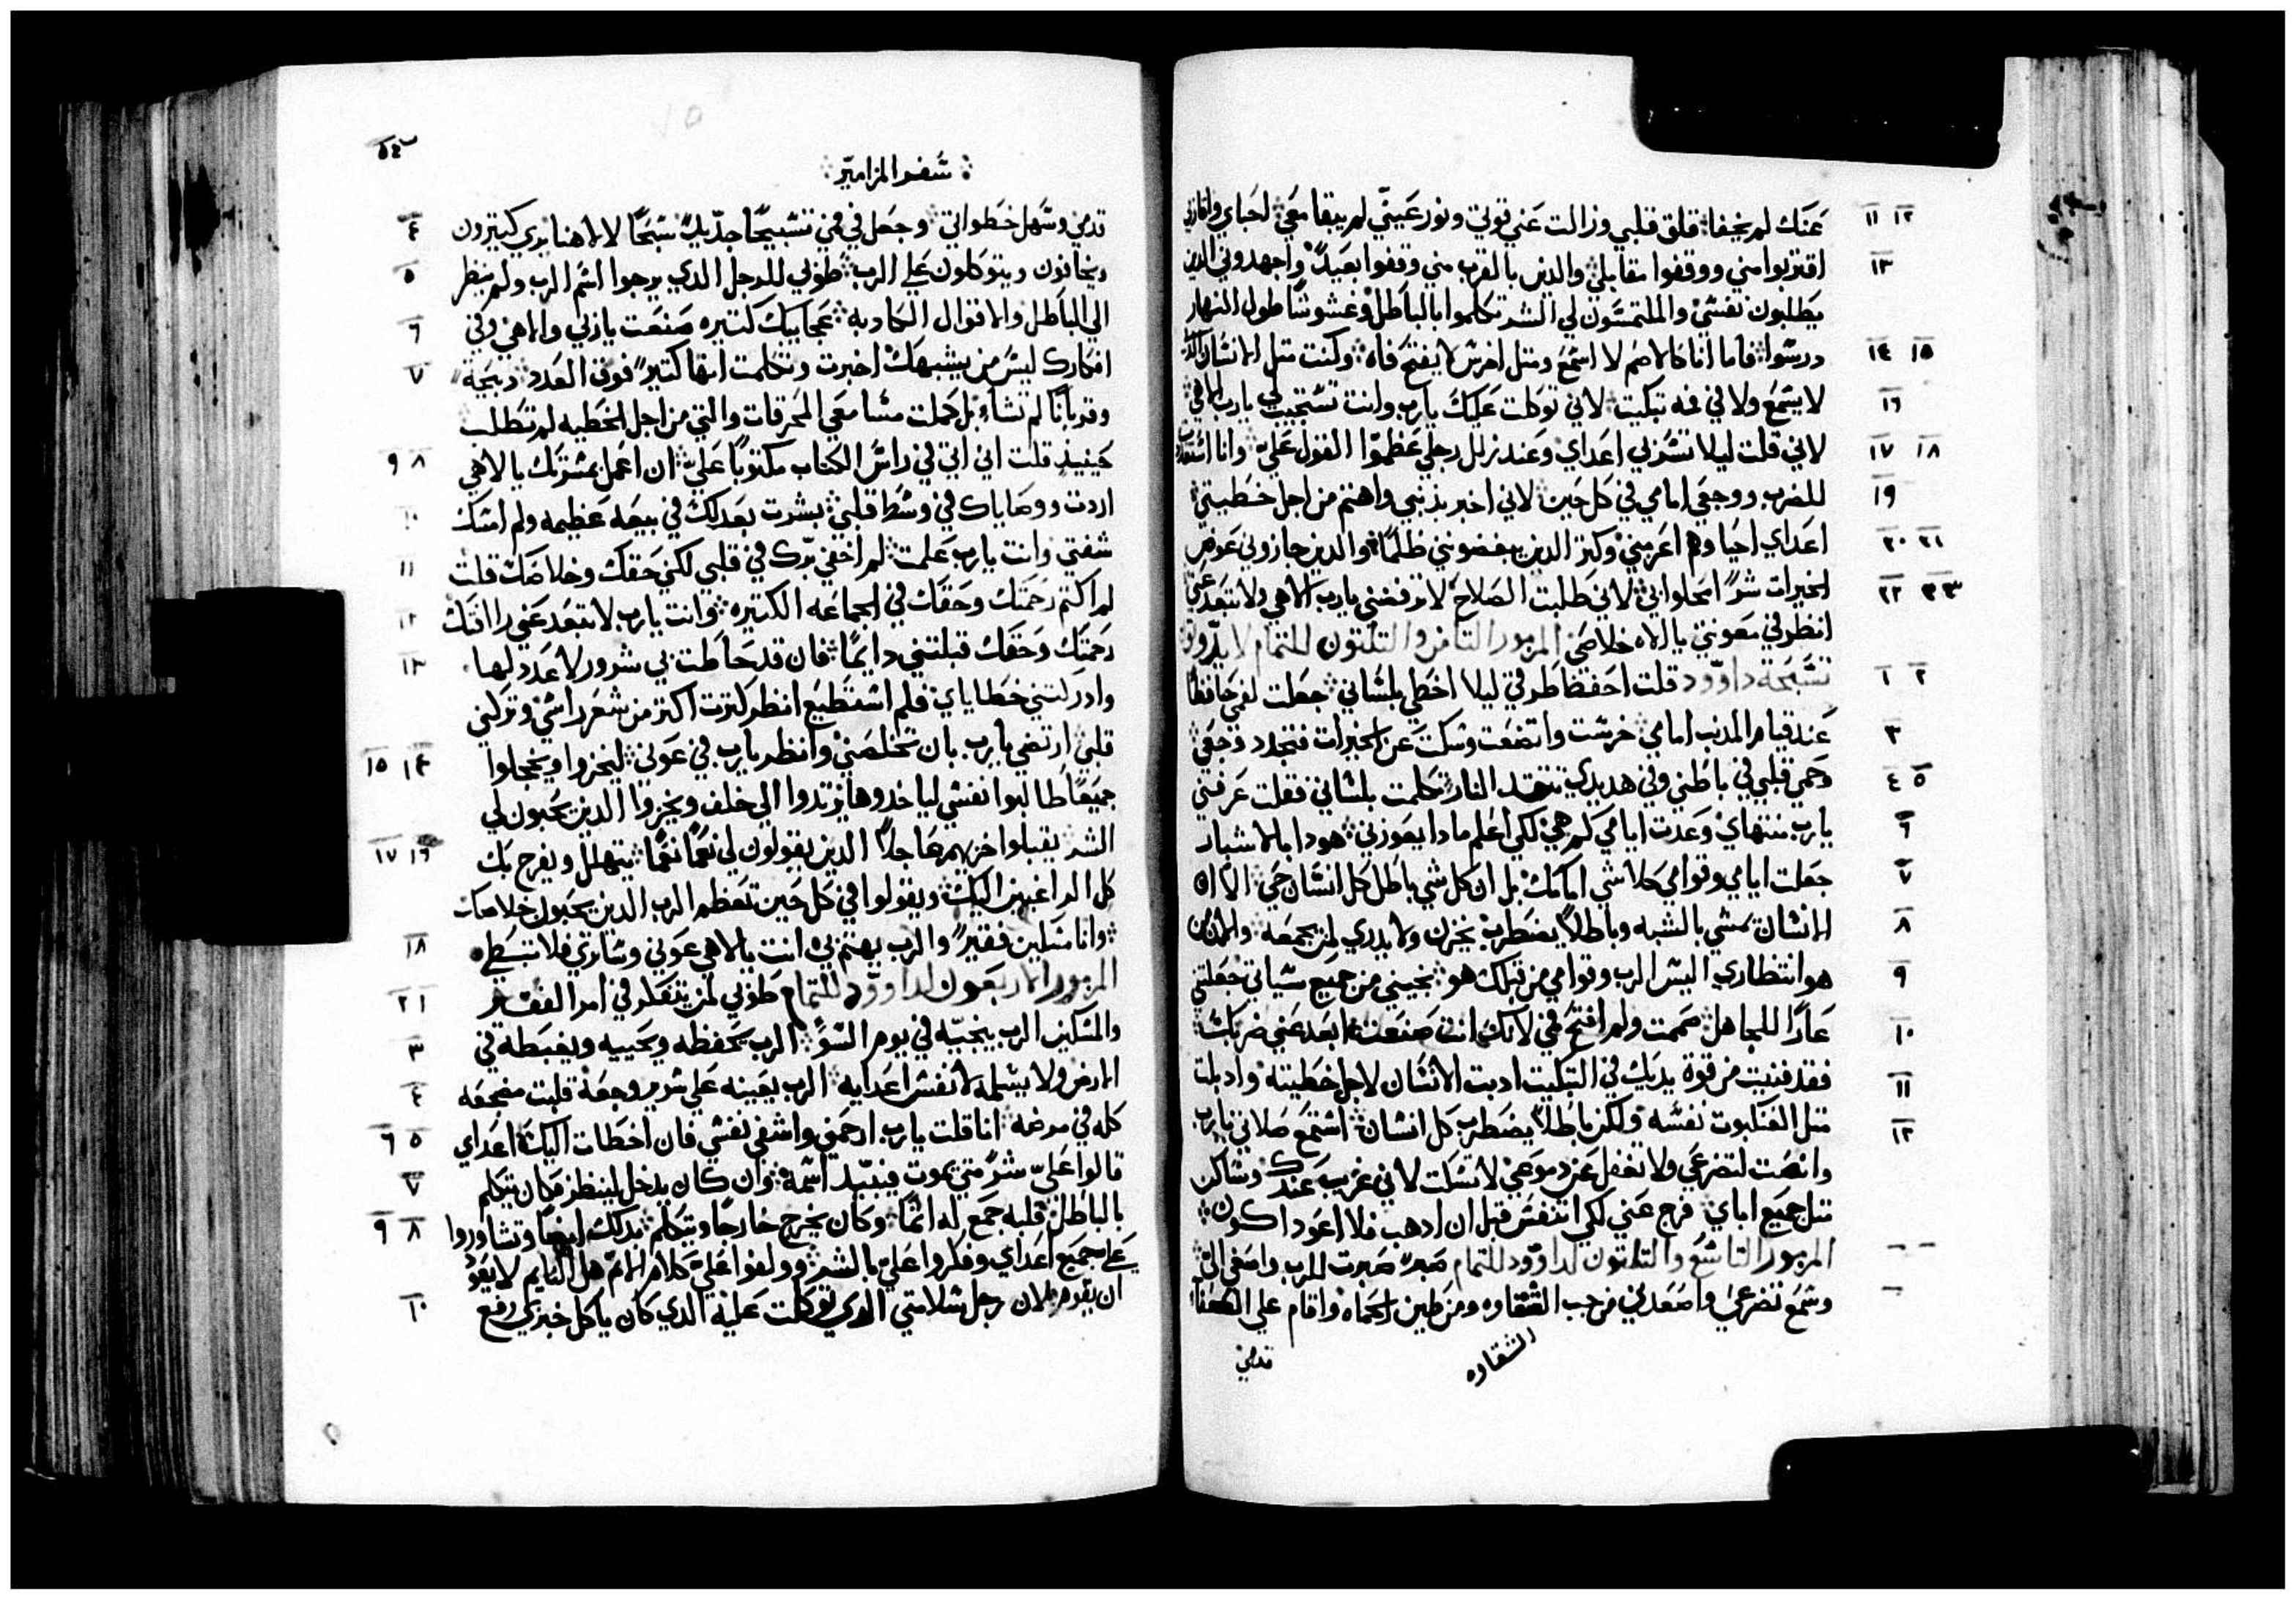 عنك لم يخفا قلق قلبي وزالت عني قوتي ونور عيني لم يبقا معي احباي واقاربي
اقتربوا مني ووقفوا مقابلي والدين بالقرب مني وقفوا بعيدً واجهدوني الدين
يطلبون نفسي والملتمسون لي الشر تكلموا بالباطل وغشوشًا طول النهار
درسوا فاما انا كالاصم لا اسمع ومتل اخرس لا يفتح فاه وكنت متل الانسان الدي
لا يسمع ولا في فمه تبكيت لاني توكلت عليك يارب وانت تستجيب لي يارب الاهي
لاني قلت ليلا تشرني اعداي وعند زلل رجلي عظموا القول علي وانا استعديت
للضرب ووجعي امامي في كل حين لاني اخبر بدنبي واهتم من اجل خطيتي
اعداي احيا وهم اعز مني وكتر الدين يبغضونني ظلمًا والدين جازوني عوض
الخيرات شرًا امحلوا بي لاني طلبت الصلاح لا ترفضني يارب الاهي ولا تبعد عني
انظر في معونتي يا الاه خلاصي المزمور التامن والتلتون للتمام لايدوتون
تسبحة داوود قلت احفظ طرقي ليلا اخطي بلساني جعلت لفمي حافظًا
عند قيام المدنب امامي خرست واتضعت وسكت عن الخيرات فتجدد وجعي
وحمي قلبي في باطني وفي هديدي تتقد النار تكلمت بلساني فقلت عرفني
يارب منتهاي وعدت ايامي كم هي لكي اعلم مادا يعوزني هودا بالاشبار
جعلت ايامي وقوامي كلا شي امامك بل ان كل شي باطل كل انسان حي الا ان
الانسان يمشي بالشبه وباطلاً يضطرب يخزن ولا يدري لمن يجمعه والان من
هو انتظاري اليس الرب وقوامي من قبلك هو نجيني من جميع سياتي جعلتني
عارًا للجاهل صممت ولم افتح فمي لانك انت صنعت ابعد عني ضرباتك
فقد فنيت من قوة يديك في التبكيت ادبت الانسان لاجل خطيته وادبلت
متل العنكبوت نفسه ولكن باطلاً يضطرب كل انسان استمع صلاتي يارب
وانصت لتضرعي ولا تغفل عن دموعي لا تسكت لاني غريب عندك وساكن
متل جميع اباي فرج عني لكي اتنفس قبل ان ادهب فلا اعود اكون
المزمور التاسع والتلتون لداوود للتمام صبرًا صبرت للرب واصغى الي
وسمع تضرعي واصعدني من جب الشقاوه ومن طين الحماه واقام على الصفا
الشقاوه
قدمي
سفر المزامير
قدمي وسهل خطواتي وجعل في فمي تسبيحًا جديدًا سبحًا لالاهنا يري كتيرون
ويخافون ويتوكلون على الرب طوبي للرجل الدي يرجوا اسم الرب ولم ينظر
الي الباطل والاقوال الكادبه عجايبك كتيره صنعت يا ربي والاهي وفي
افكارك ليس من يشبهك اخبرت وتكلمت انها كتيرً فوق العدد دبيحة
وقربانًا لم تشاء بل كملت مسامعي المحرقات والتي من اجل الخطيه لم تطلب
حينيد قلت اني اتي في راس الكتاب مكتوبًا علي ان اعمل بمشرتك يا الاهي
اردت ووصاياك في وسط قلبي بشرت بعدلك في بيعه عظيمه ولم امسك
شفتي وانت يارب علمت لم اخفي برك في قلبي لكني حقك وخلاصك قلت
لم اكتم رحمتك وحقك في الجماعه الكتيره وانت يارب لا تبعد عني رافتك
رحمتك وحقك قبلتني دايمًا فان قد حاطت بي شرور لا عدد لها
وادركتني خطاياي فلم استطيع انظر كترت اكتر من شعر راسي وتركني
قلبي ارتضي يارب بان تخلصني وانظر يارب في عوني ليخزوا ويخجلوا
جميعًا طالبوا نفسي لياخدوها يرتدوا الي خلف ويخزوا الدين يحبون لي
الشر يقبلوا خزيهم عاجلاً الدين يقولون لي نعمًا نعمًا يتهلل ويفرح بك
كل الراغبين اليك ويقولوا في كل حين تعظم الرب الدين يحبون خلاصك
وانا مسكين فقيرً والرب يهتم بي انت يا الاهي عوني وساتري فلا تبطي
المزمور الاربعون لداوود للتمام طوبي لمن يتفكر في امر الفقير
والمسكين الرب ينجيه في يوم السؤ الرب يحفظه ويحييه ويغبطه في
الارض ولا يسلمه لانفس اعدايه الرب يعينه علي سرير وجعه قلبت مضجعه
كله في مرضه انا قلت يارب ارحمني واشفي نفسي فان اخطات اليك اعداي
قالوا علي شرً متي يموت فيبيد اسمه وان كان يدخل لينظر فكان يتكلم
بالباطل قلبه جمع له اتمًا وكان يخرج خارجًا ويتكلم بدلك ايضًا وتشاوروا
علي جميع اعداي وفكروا علي بالشر وولفوا علي كلام الاتم هل النايم لا يعود
ان يقوم فلان رجل سلامتي الدي توكلت عليه الدي كان ياكل خبزي رفع